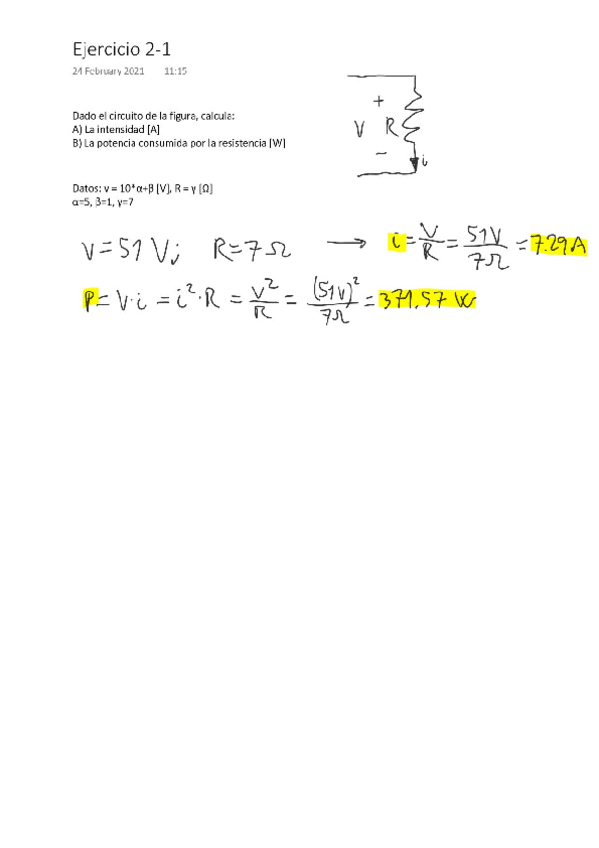 Ejercicio 2-1
24 February 2021 11:15
Dado el circuito de la figura, calcula:
A) La intensidad [A]
B) La potencia consumida por la resistencia [W]
+
V R
-
i
Datos: v = 10*α+β [V], R = γ [Ω]
α=5, β=1, γ=7
V = 51 V; R = 7 Ω → i = V/R = 51V/7Ω = 7.29 A
P = V·i = i²·R = V²/R = (51V)²/7Ω = 371.57 W